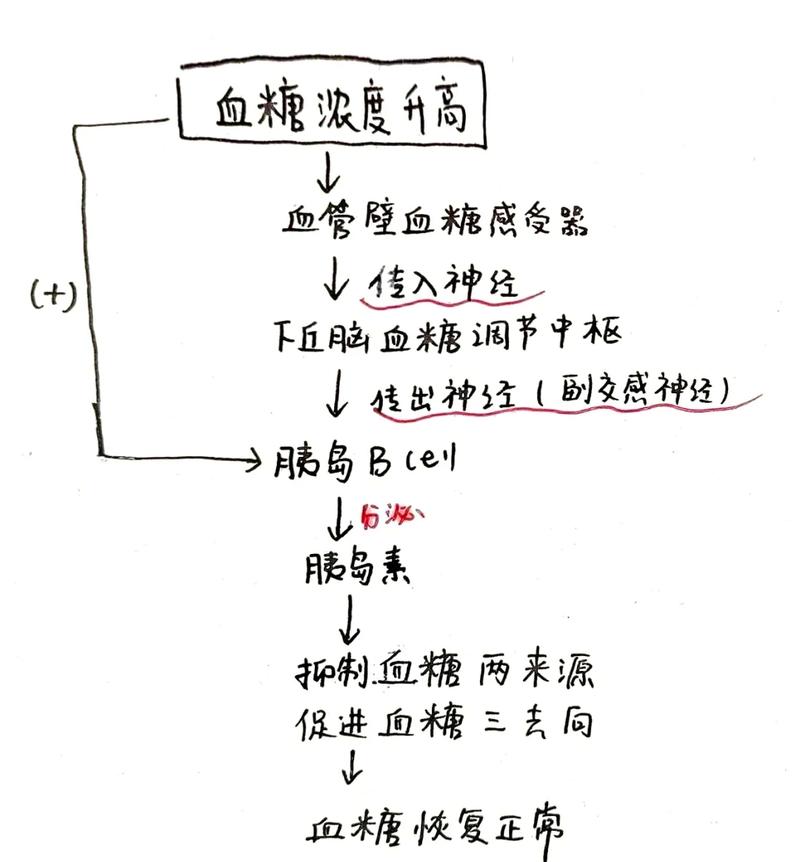 血糖浓度升高
血管壁血糖感受器
传入神经
(+)
下丘脑血糖调节中枢
传出神经(副交感神经)
胰岛B cell
分泌
胰岛素
抑制血糖两来源
促进血糖三去向
血糖恢复正常